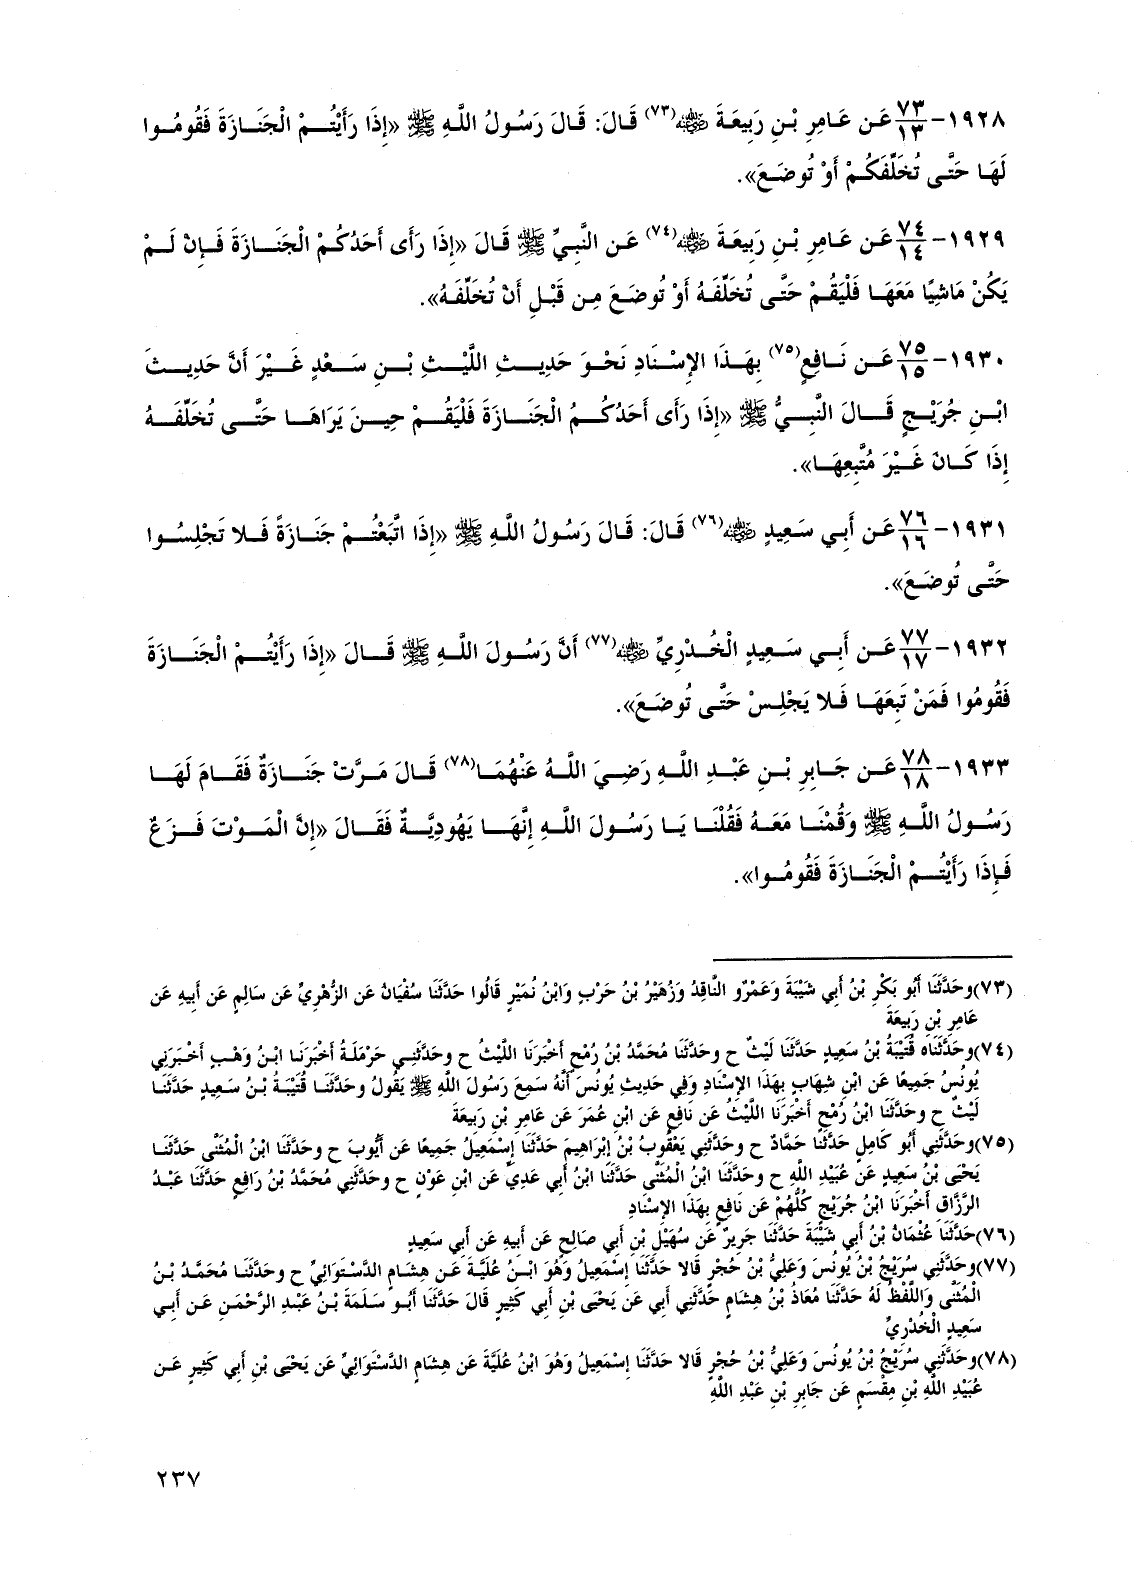 ١٩٢٨- ٧٣/١٣ عَن عَامِرِ بْنِ رَبِيعَةَ ﷺ(٧٣) قَالَ: قَالَ رَسُولُ اللَّهِ ﷺ «إِذَا رَأَيْتُمْ الْجَنَازَةَ فَقُومُوا
لَهَا حَتَّى تُخَلِّفَكُمْ أَوْ تُوضَعَ».
١٩٢٩- ٧٤/١٤ عَن عَامِرِ بْنِ رَبِيعَةَ (٧٤) عَن النَّبِيِّ ﷺ قَالَ «إِذَا رَأَى أَحَدُكُمْ الْجَنَازَةَ فَإِنْ لَمْ
يَكُنْ مَاشِيًا مَعَهَا فَلْيَقُمْ حَتَّى تُخَلِّفَهُ أَوْ تُوضَعَ مِن قَبْلِ أَنْ تُخَلِّفَهُ».
١٩٣٠- ٧٥/١٥ عَن نَافِعٍ(٧٥) بِهَذَا الإِسْنَادِ نَحْوَ حَدِيثِ اللَّيْثِ بْنِ سَعْدٍ غَيْرَ أَنَّ حَدِيثَ
ابْنِ جُرَيْجٍ قَالَ النَّبِيُّ ﷺ «إِذَا رَأَى أَحَدُكُمُ الْجَنَازَةَ فَلْيَقُمْ حِينَ يَرَاهَا حَتَّى تُخَلِّفَهُ
إِذَا كَانَ غَيْرَ مُتَّبِعِهَا».
١٩٣١- ٧٦/١٦ عَن أَبِي سَعِيدٍ (٧٦) قَالَ: قَالَ رَسُولُ اللَّهِ ﷺ «إِذَا اتَّبَعْتُمْ جَنَازَةً فَلا تَجْلِسُوا
حَتَّى تُوضَعَ».
١٩٣٢- ٧٧/١٧ عَن أَبِي سَعِيدٍ الْخُدْرِيِّ (٧٧) أَنَّ رَسُولَ اللَّهِ ﷺ قَالَ «إِذَا رَأَيْتُمْ الْجَنَازَةَ
فَقُومُوا فَمَنْ تَبِعَهَا فَلا يَجْلِسْ حَتَّى تُوضَعَ».
١٩٣٣- ٧٨/١٨ عَن جَابِرِ بْنِ عَبْدِ اللَّهِ رَضِيَ اللَّهُ عَنْهُمَا(٧٨) قَالَ مَرَّتْ جَنَازَةٌ فَقَامَ لَهَا
رَسُولُ اللَّهِ ﷺ وَقُمْنَا مَعَهُ فَقُلْنَا يَا رَسُولَ اللَّهِ إِنَّهَا يَهُودِيَّةٌ فَقَالَ «إِنَّ الْمَوْتَ فَزَعٌ
فَإِذَا رَأَيْتُمْ الْجَنَازَةَ فَقُومُوا».
(٧٣)وحَدَّثَنَا أَبُو بَكْرِ بْنُ أَبِي شَيْبَةَ وَعَمْرٌو النَّاقِدُ وَزُهَيْرُ بْنُ حَرْبٍ وَابْنُ نُمَيْرٍ قَالُوا حَدَّثَنَا سُفْيَانُ عَن الزُّهْرِيِّ عَن سَالِمٍ عَن أَبِيهِ عَن
عَامِرِ بْنِ رَبِيعَةَ
(٧٤)وحَدَّثَنَاه قُتَيْبَةُ بْنُ سَعِيدٍ حَدَّثَنَا لَيْثٌ ح وحَدَّثَنَا مُحَمَّدُ بْنُ رُمْحٍ أَخْبَرَنَا اللَّيْثُ ح وحَدَّثَنِي حَرْمَلَةُ أَخْبَرَنَا ابْنُ وَهْبٍ أَخْبَرَنِي
يُونُسُ جَمِيعًا عَن ابْنِ شِهَابٍ بِهَذَا الإِسْنَادِ وَفِي حَدِيثِ يُونُسَ أَنَّهُ سَمِعَ رَسُولَ اللَّهِ ﷺ يَقُولُ وحَدَّثَنَا قُتَيْبَةُ بْنُ سَعِيدٍ حَدَّثَنَا
لَيْثٌ ح وحَدَّثَنَا ابْنُ رُمْحٍ أَخْبَرَنَا اللَّيْثُ عَن نَافِعٍ عَن ابْنِ عُمَرَ عَن عَامِرِ بْنِ رَبِيعَةَ
(٧٥)وحَدَّثَنِي أَبُو كَامِلٍ حَدَّثَنَا حَمَّادٌ ح وحَدَّثَنِي يَعْقُوبُ بْنُ إِبْرَاهِيمَ حَدَّثَنَا إِسْمَعِيلُ جَمِيعًا عَن أَيُّوبَ ح وحَدَّثَنَا ابْنُ الْمُثَنَّى حَدَّثَنَا
يَحْيَى بْنُ سَعِيدٍ عَن عُبَيْدِ اللَّهِ ح وحَدَّثَنَا ابْنُ الْمُثَنَّى حَدَّثَنَا ابْنُ أَبِي عَدِيٍّ عَن ابْنِ عَوْنٍ ح وحَدَّثَنِي مُحَمَّدُ بْنُ رَافِعٍ حَدَّثَنَا عَبْدُ
الرَّزَّاقِ أَخْبَرَنَا ابْنُ جُرَيْجٍ كُلُّهُمْ عَن نَافِعٍ بِهَذَا الإِسْنَادِ
(٧٦)حَدَّثَنَا عُثْمَانُ بْنُ أَبِي شَيْبَةَ حَدَّثَنَا جَرِيرٌ عَن سُهَيْلِ بْنِ أَبِي صَالِحٍ عَن أَبِيهِ عَن أَبِي سَعِيدٍ
(٧٧)وحَدَّثَنِي سُرَيْجُ بْنُ يُونُسَ وَعَلِيُّ بْنُ حُجْرٍ قَالا حَدَّثَنَا إِسْمَعِيلُ وَهُوَ ابْنُ عُلَيَّةَ عَن هِشَامٍ الدَّسْتَوَائِيِّ ح وحَدَّثَنَا مُحَمَّدُ بْنُ
الْمُثَنَّى وَاللَّفْظُ لَهُ حَدَّثَنَا مُعَاذُ بْنُ هِشَامٍ حَدَّثَنِي أَبِي عَن يَحْيَى بْنِ أَبِي كَثِيرٍ قَالَ حَدَّثَنَا أَبُو سَلَمَةَ بْنُ عَبْدِ الرَّحْمَنِ عَن أَبِي
سَعِيدٍ الْخُدْرِيِّ
(٧٨)وحَدَّثَنِي سُرَيْجُ بْنُ يُونُسَ وَعَلِيُّ بْنُ حُجْرٍ قَالا حَدَّثَنَا إِسْمَعِيلُ وَهُوَ ابْنُ عُلَيَّةَ عَن هِشَامٍ الدَّسْتَوَائِيِّ عَن يَحْيَى بْنِ أَبِي كَثِيرٍ عَن
عُبَيْدِ اللَّهِ بْنِ مِقْسَمٍ عَن جَابِرِ بْنِ عَبْدِ اللَّهِ
٢٣٧